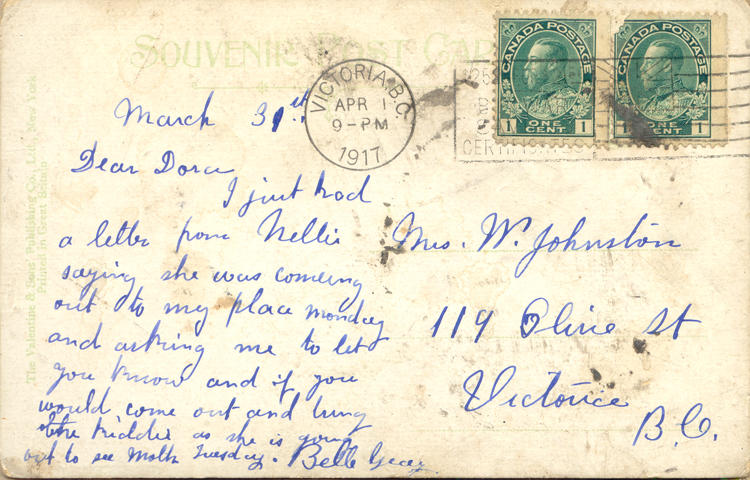 SOUVENIR POST CARD
CANADA POSTAGE
1 ONE CENT 1
CANADA POSTAGE
1 ONE CENT 1
VICTORIA, B.C.
APR 1
9-PM
1917
25
March 31st
Dear Dora
I just had
a letter from Nellie
saying she was comeing
out to my place monday
and asking me to let
you know and if you
would come out and bring
the kiddie as she is going
out to see Moth Tuesday. Belle
Mrs. W. Johnston
119 Olive St
Victoria
B.C.
The Valentine & Sons Publishing Co., Ltd., New York
Printed in Great Britain